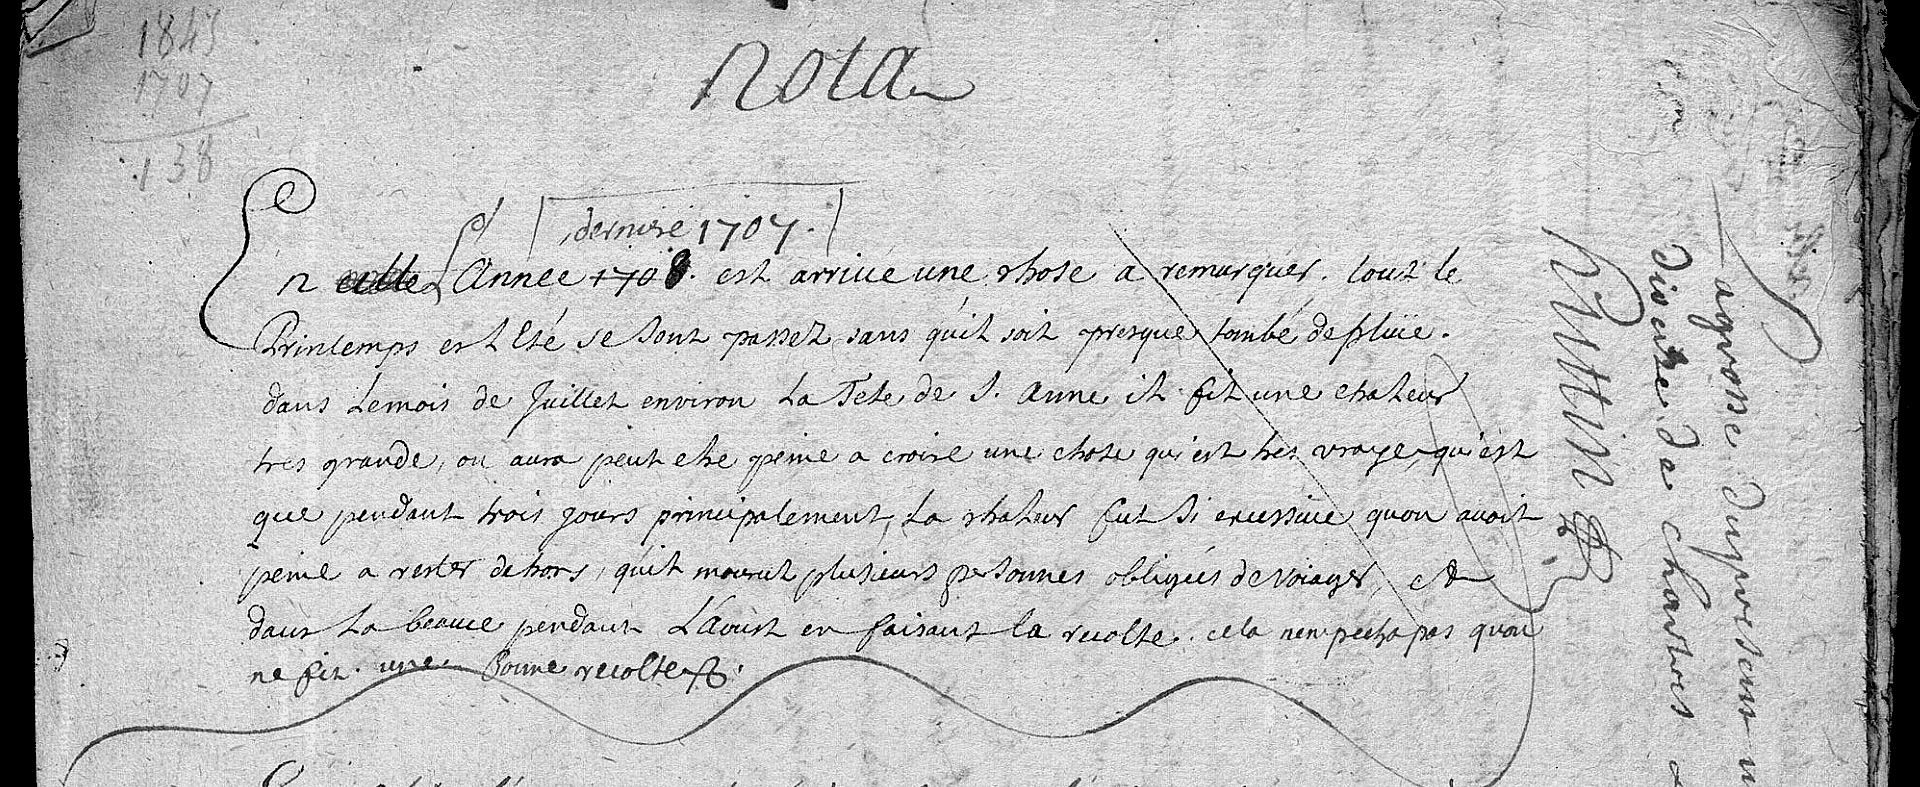 1845
1707
138
Nota
derniere 1707.
En cette L'Annee 1708. est arrivé une chose a remarquer. tout le
Printemps et l'Eté se sont passez sans qu'il soit presque tombé de pluïe.
dans Le mois de Juillet environ La Fete de S. Anne il fit une chaleur
tres grande, on aura peut etre peine a croire une chose qu'est tres vraye, qu'est
que pendant trois jours principalement, La chaleur fut si excessive qu'on avoit
peine a rester dehors, qu'il mourut plusieurs personnes obligées de voiager, et
dans La beauce pendant L'Aoust en faisant la recolte. cela nempecha pas quon
ne fit une bonne recolte.
La grosse du present
diocese de chartres